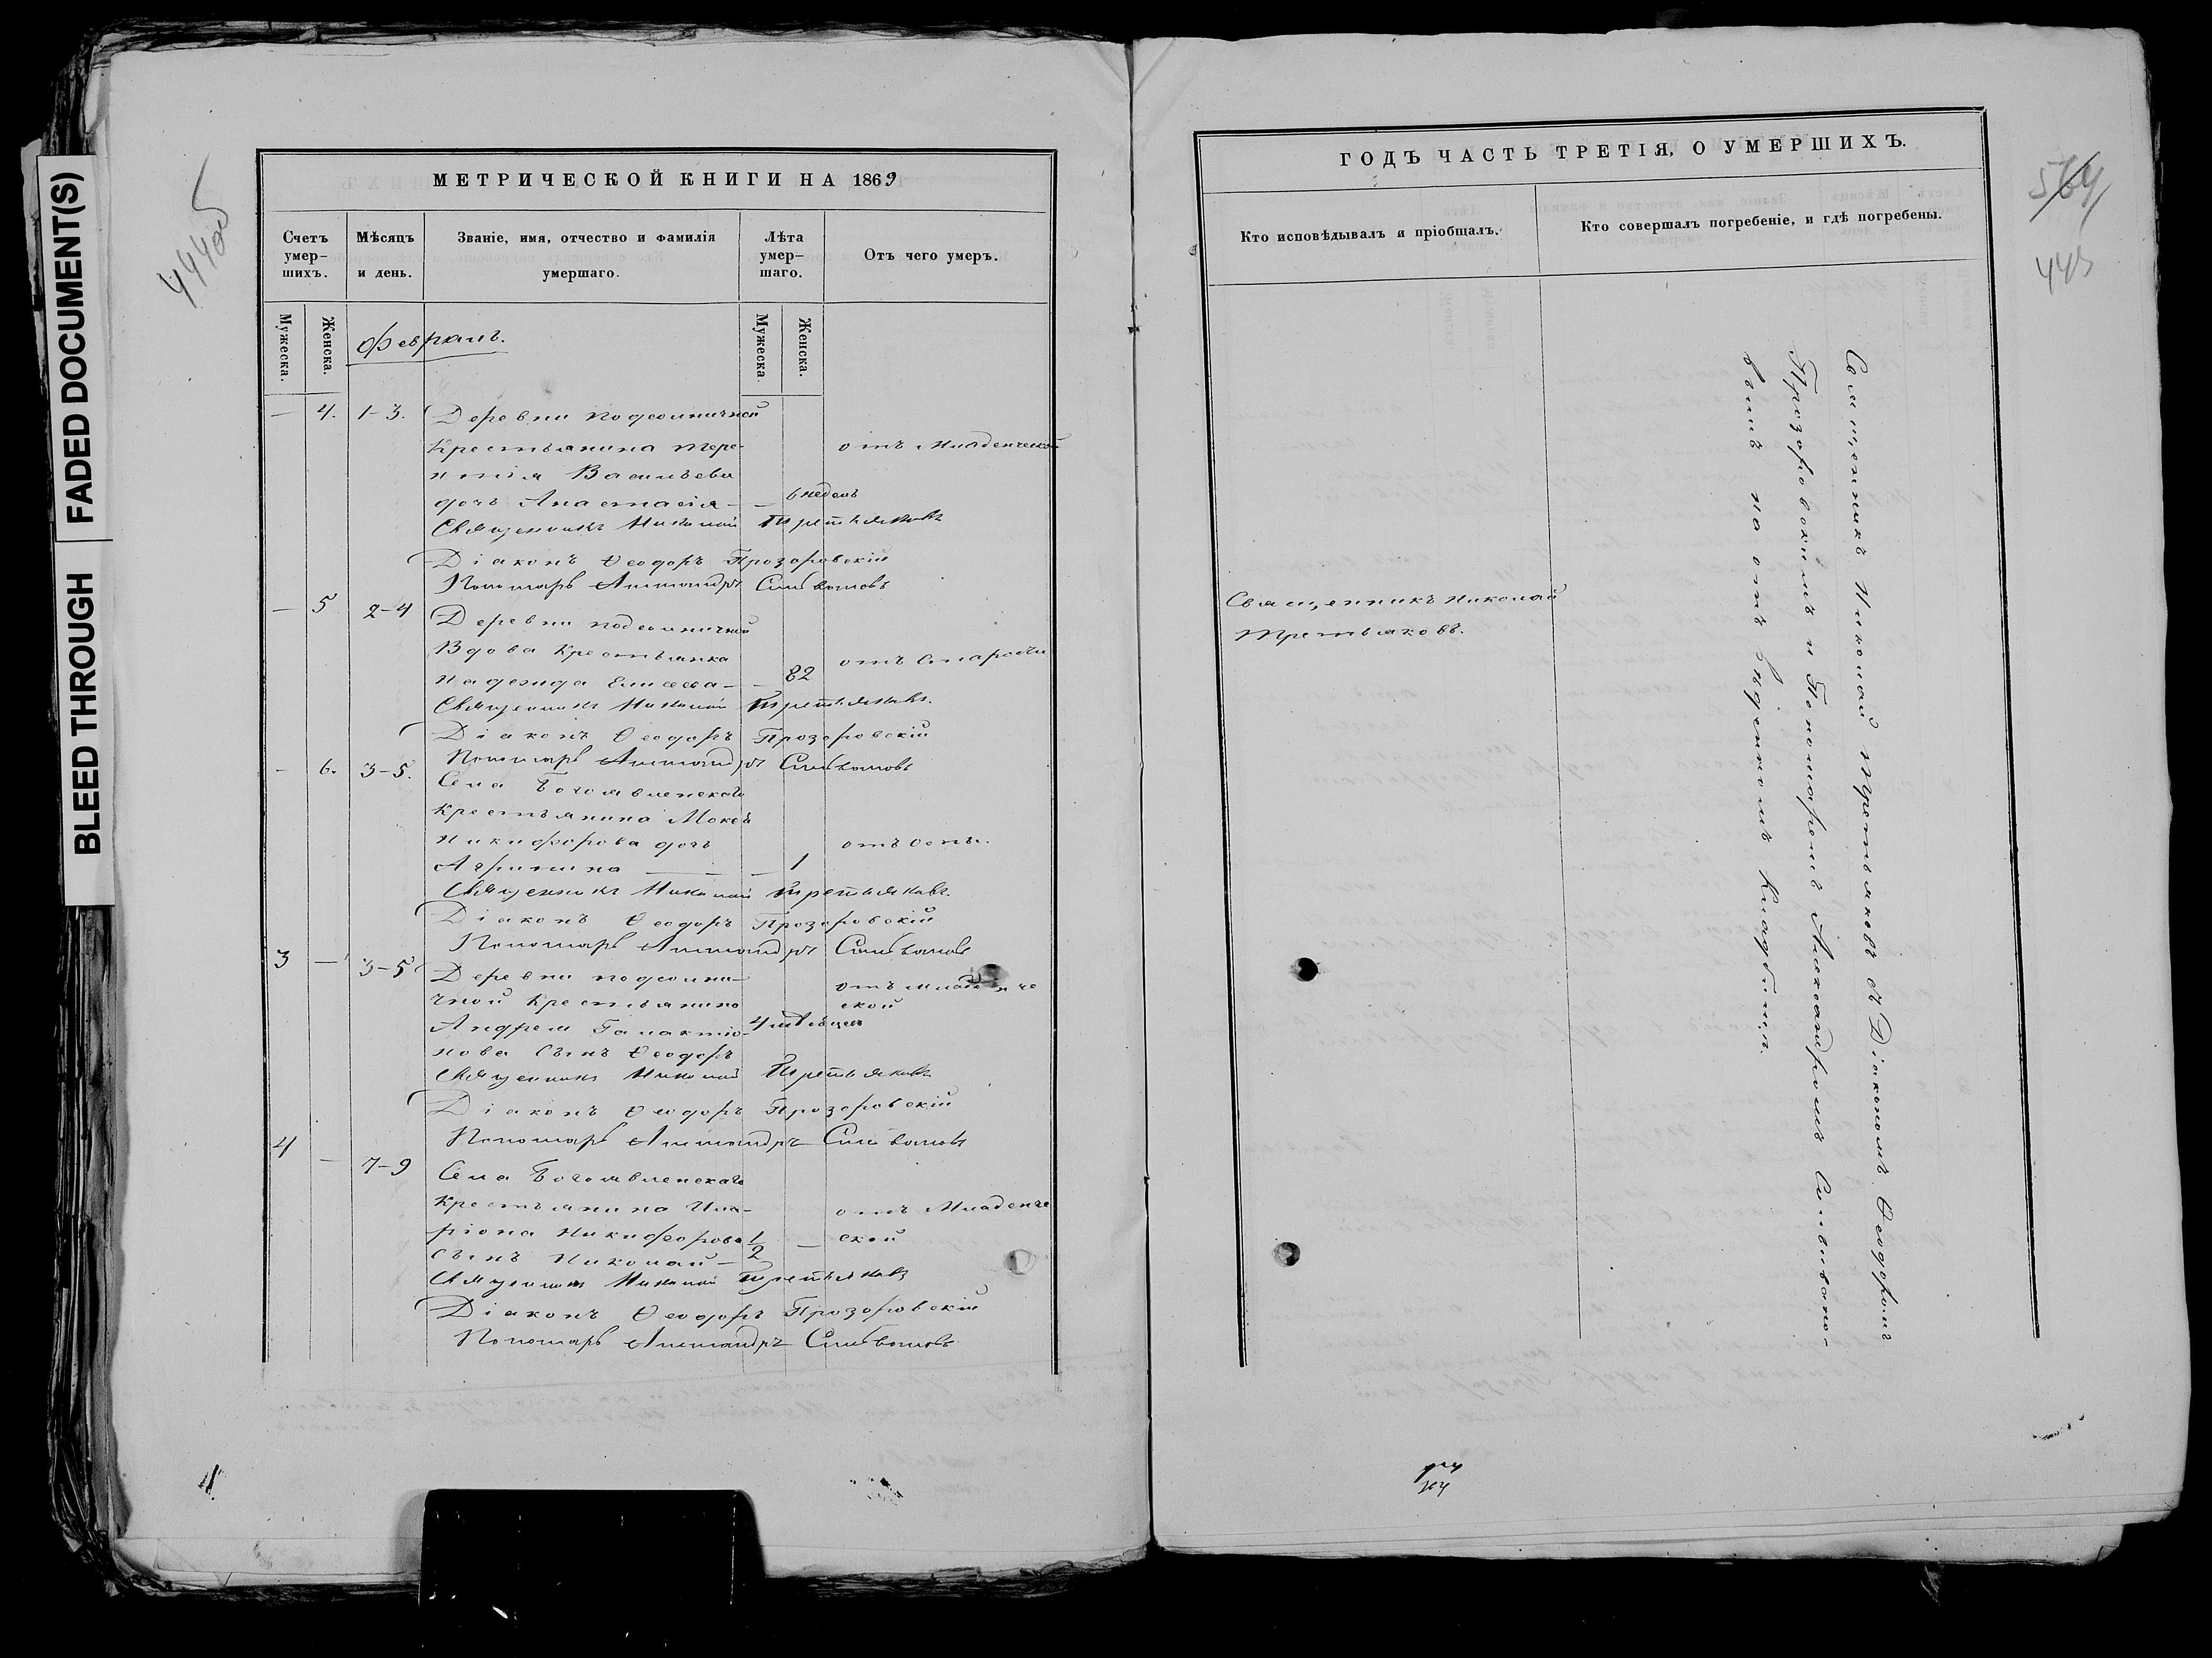 BLEED THROUGH
FADED DOCUMENT(S)
444об
МЕТРИЧЕСКОЙ КНИГИ НА 1869
Счетъ умер-шихъ.
Мѣсяцъ и день.
Званіе, имя, отчество и фамилія умершаго.
Лѣта умер-шаго.
Отъ чего умеръ.
Мужеска.
Женска.
Мужеска.
Женска.
Февраль.
— 4. 1-3. Деревни Подсолничной
Крестьянина Тере-
нтія Васильева
отъ Младенческой
дочь Анастасія — — 6 недѣль
Священникъ Николай Третьяковъ
Діаконъ Ѳеодоръ Прозоровскій
Пономарь Александръ Сильвановъ
— 5 2-4 Деревни Подсолничной
Вдова Крестьянка
Надежда Елисеева — — 82 отъ Старости
Священникъ Николай Третьяковъ.
Діаконъ Ѳеодоръ Прозоровскій
Пономарь Александръ Сильвановъ
— 6. 3-5. Села Богоявленскаго
Крестьянина Мокея
Никифорова дочь отъ оспы.
Агрипина — — 1
Священникъ Николай Третьяковъ.
Діаконъ Ѳеодоръ Прозоровскій
Пономарь Александръ Сильвановъ
3 — 3-5 Деревни Подсолни-
чной Крестьянина
отъ младенче
ской
Андрея Галактіо-
4 мѣсяцев
нова Сынъ Ѳеодоръ
Священникъ Николай Третьяковъ
Діаконъ Ѳеодоръ Прозоровскій
Пономарь Александръ Сильвановъ
4 — 7-9 Села Богоявленскаго
Крестьянина Ила-
ріона Никифорова
1/2 — отъ Младенче
ской
Сынъ Николай —
Священникъ Николай Третьяковъ
Діаконъ Ѳеодоръ Прозоровскій
Пономарь Александръ Сильвановъ
ГОДЪ ЧАСТЬ ТРЕТІЯ, О УМЕРШИХЪ.
564
445
Кто исповѣдывалъ и пріобщалъ.
Кто совершалъ погребеніе, и гдѣ погребены.
Священникъ Николай
Третьяковъ.
Священникъ Николай Третьяковъ съ Діакономъ Ѳеодоромъ
Прозоровскимъ и Пономаремъ Александромъ Сильвано-
вымъ на отведенномъ Кладбищѣ.